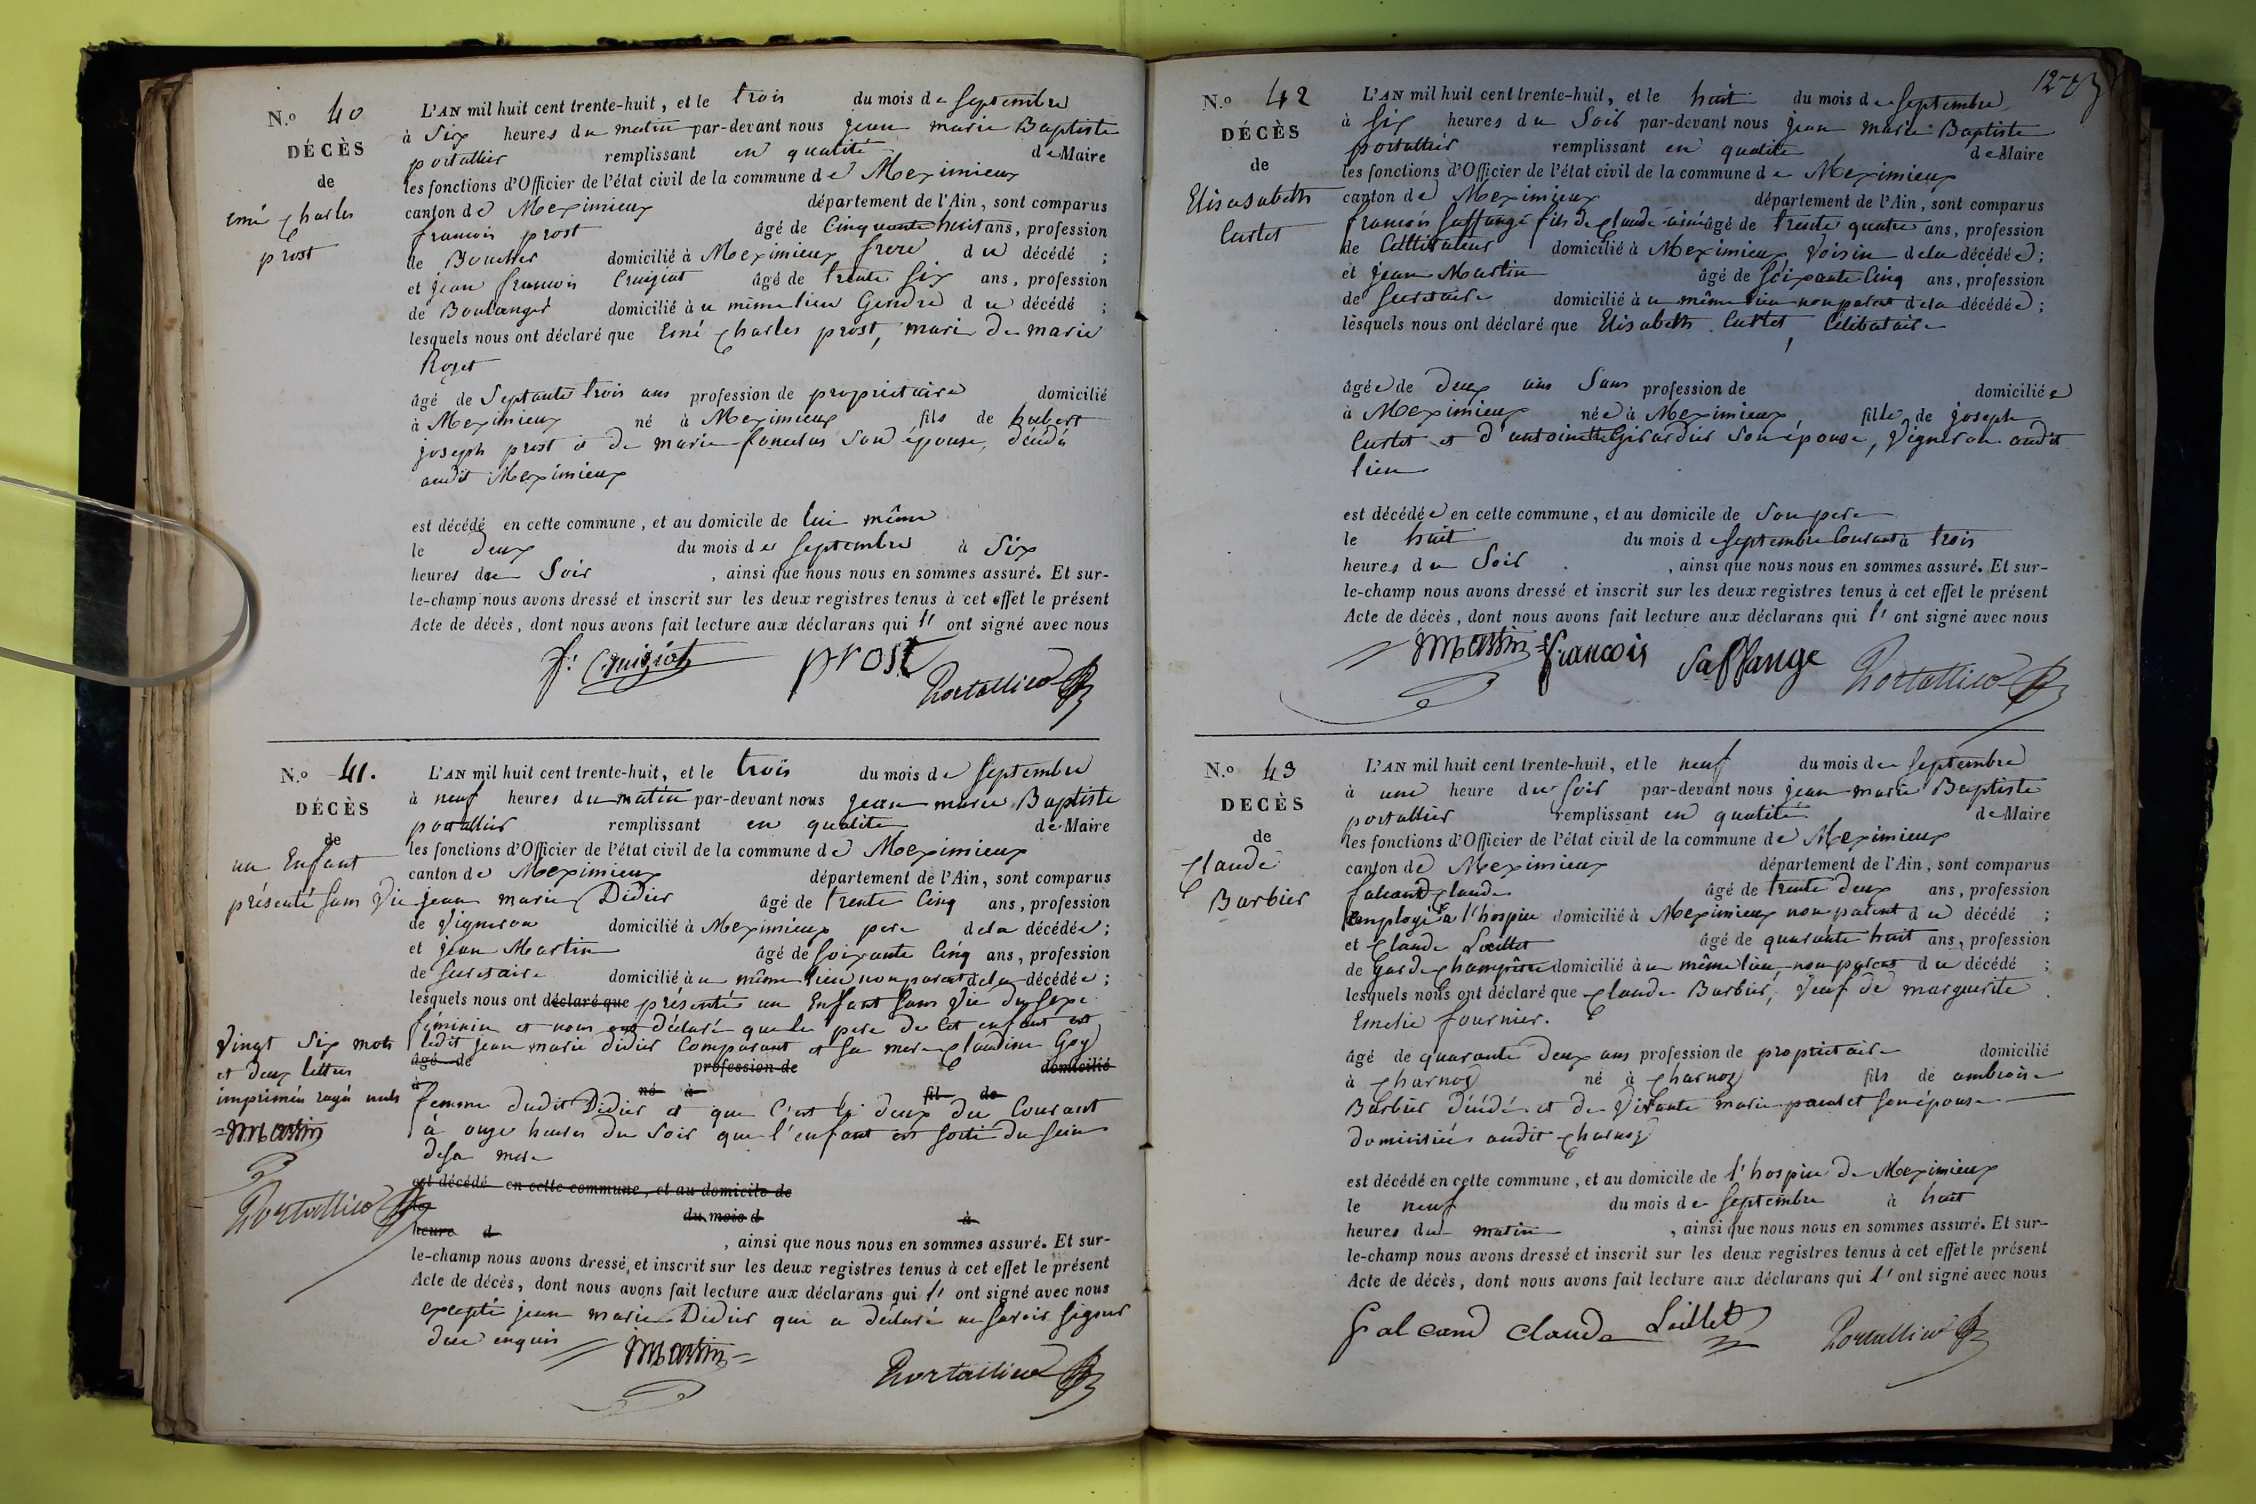 N.o 40
DÉCÈS
de
Emé Charles
prost
L'AN mil huit cent trente-huit, et le trois du mois de Septembre
à Six heures du matin par-devant nous jean marie Baptiste
portallier remplissant en qualité de Maire
les fonctions d'Officier de l'état civil de la commune de Meximieux
canton de Meximieux département de l'Ain, sont comparus
francois prost âgé de Cinquante huit ans, profession
de Boucher domicilié à Meximieux frere du décédé ;
et jean francois Cruiziat âgé de trente Six ans, profession
de Boulanger domicilié à u même lieu Gendre du décédé ;
lesquels nous ont déclaré que Emé Charles prost, mari de marie
Rozet
âgé de Septante trois ans profession de proprietaire domicilié
à Meximieux né à Meximieux fils de hubert
joseph prost et de marie son épouse, décédé
audit Meximieux
est décédé en cette commune, et au domicile de lui même
le deux du mois de Septembre à Six
heures du Soir, ainsi que nous nous en sommes assuré. Et sur-
le-champ nous avons dressé et inscrit sur les deux registres tenus à cet effet le présent
Acte de décès, dont nous avons fait lecture aux déclarans qui l' ont signé avec nous
f. Cruiziat prost Portallier
N.o 41.
DÉCÈS
de
un Enfant
présenté sans Vie
L'AN mil huit cent trente-huit, et le trois du mois de Septembre
à neuf heures du matin par-devant nous jean marie Baptiste
portallier remplissant en qualité de Maire
les fonctions d'Officier de l'état civil de la commune de Meximieux
canton de Meximieux département de l'Ain, sont comparus
jean marie Didier âgé de trente Cinq ans, profession
de Vigneron domicilié à Meximieux pere de la décédée ;
et jean Martin âgé de Soixante Cinq ans, profession
de Secretaire domicilié à u même lieu non parent de la décédée ;
lesquels nous ont déclaré que présenté un Enfant sans Vie du Sexe
féminin et nous ont déclaré que le pere de cet enfant est
ledit jean marie didier Comparant et sa mere Claudine Goy
âgé de profession de domicilié
à né à fil de
femme dudit Didier et que C'est le deux du Courant
à onze heures du Soir que l'enfant est sorti du sein
de sa mere
est décédé en cette commune, et au domicile de
le du mois d à
heure d , ainsi que nous nous en sommes assuré. Et sur-
le-champ nous avons dressé et inscrit sur les deux registres tenus à cet effet le présent
Acte de décès, dont nous avons fait lecture aux déclarans qui l' ont signé avec nous
excepté jean marie Didier qui a déclaré ne savoir signer
duer enquis
Martin Portallier
Vingt Six mots
et deux lettres
imprimés rayés nuls
Martin
Portallier
127
N.o 42
DÉCÈS
de
Elisasabeth
Curtet
L'AN mil huit cent trente-huit, et le huit du mois de Septembre
à Six heures du Soir par-devant nous jean marie Baptiste
portallier remplissant en qualité de Maire
les fonctions d'Officier de l'état civil de la commune de Meximieux
canton de Meximieux département de l'Ain, sont comparus
francois Saffange fils de Claude ainé âgé de trente quatre ans, profession
de Cultivateur domicilié à Meximieux Voisin de la décédée ;
et jean Martin âgé de Soixante Cinq ans, profession
de Secretaire domicilié à u même lieu non parent de la décédée ;
lesquels nous ont déclaré que Elisabeth Curtet, Célibataire
âgée de deux ans Sans profession de domiciliée
à Meximieux née à Meximieux fille de joseph
Curtet et d'antoinette Girardier son épouse, Vigneron audit
lieu
est décédée en cette commune, et au domicile de Son pere
le huit du mois de Septembre Courant à trois
heures du Soir, ainsi que nous nous en sommes assuré. Et sur-
le-champ nous avons dressé et inscrit sur les deux registres tenus à cet effet le présent
Acte de décès, dont nous avons fait lecture aux déclarans qui l' ont signé avec nous
Martin francois Saffange Portallier
N.o 43
DECÈS
de
Claude
Barbier
L'AN mil huit cent trente-huit, et le neuf du mois de Septembre
à une heure du Soir par-devant nous jean marie Baptiste
portallier remplissant en qualité de Maire
les fonctions d'Officier de l'état civil de la commune de Meximieux
canton de Meximieux département de l'Ain, sont comparus
falcand Claude âgé de trente deux ans, profession
Employé à l'hospice domicilié à Meximieux non parent du décédé ;
et Claude Loillet âgé de quarante huit ans, profession
de Garde Champêtre domicilié à u même lieu non parent du décédé ;
lesquels nous ont déclaré que Claude Barbier, Veuf de marguerite
Emelie fournier.
âgé de quarante Deux ans profession de proprietaire domicilié
à Charnoz né à Charnoz fils de ambroise
Barbier Décédé et de Vivante marie paulet son épouse
domiciliés audit Charnoz
est décédé en cette commune, et au domicile de l'hospice de Meximieux
le neuf du mois de Septembre à huit
heures du matin, ainsi que nous nous en sommes assuré. Et sur-
le-champ nous avons dressé et inscrit sur les deux registres tenus à cet effet le présent
Acte de décès, dont nous avons fait lecture aux déclarans qui l' ont signé avec nous
falcand Claude Loillet Portallier